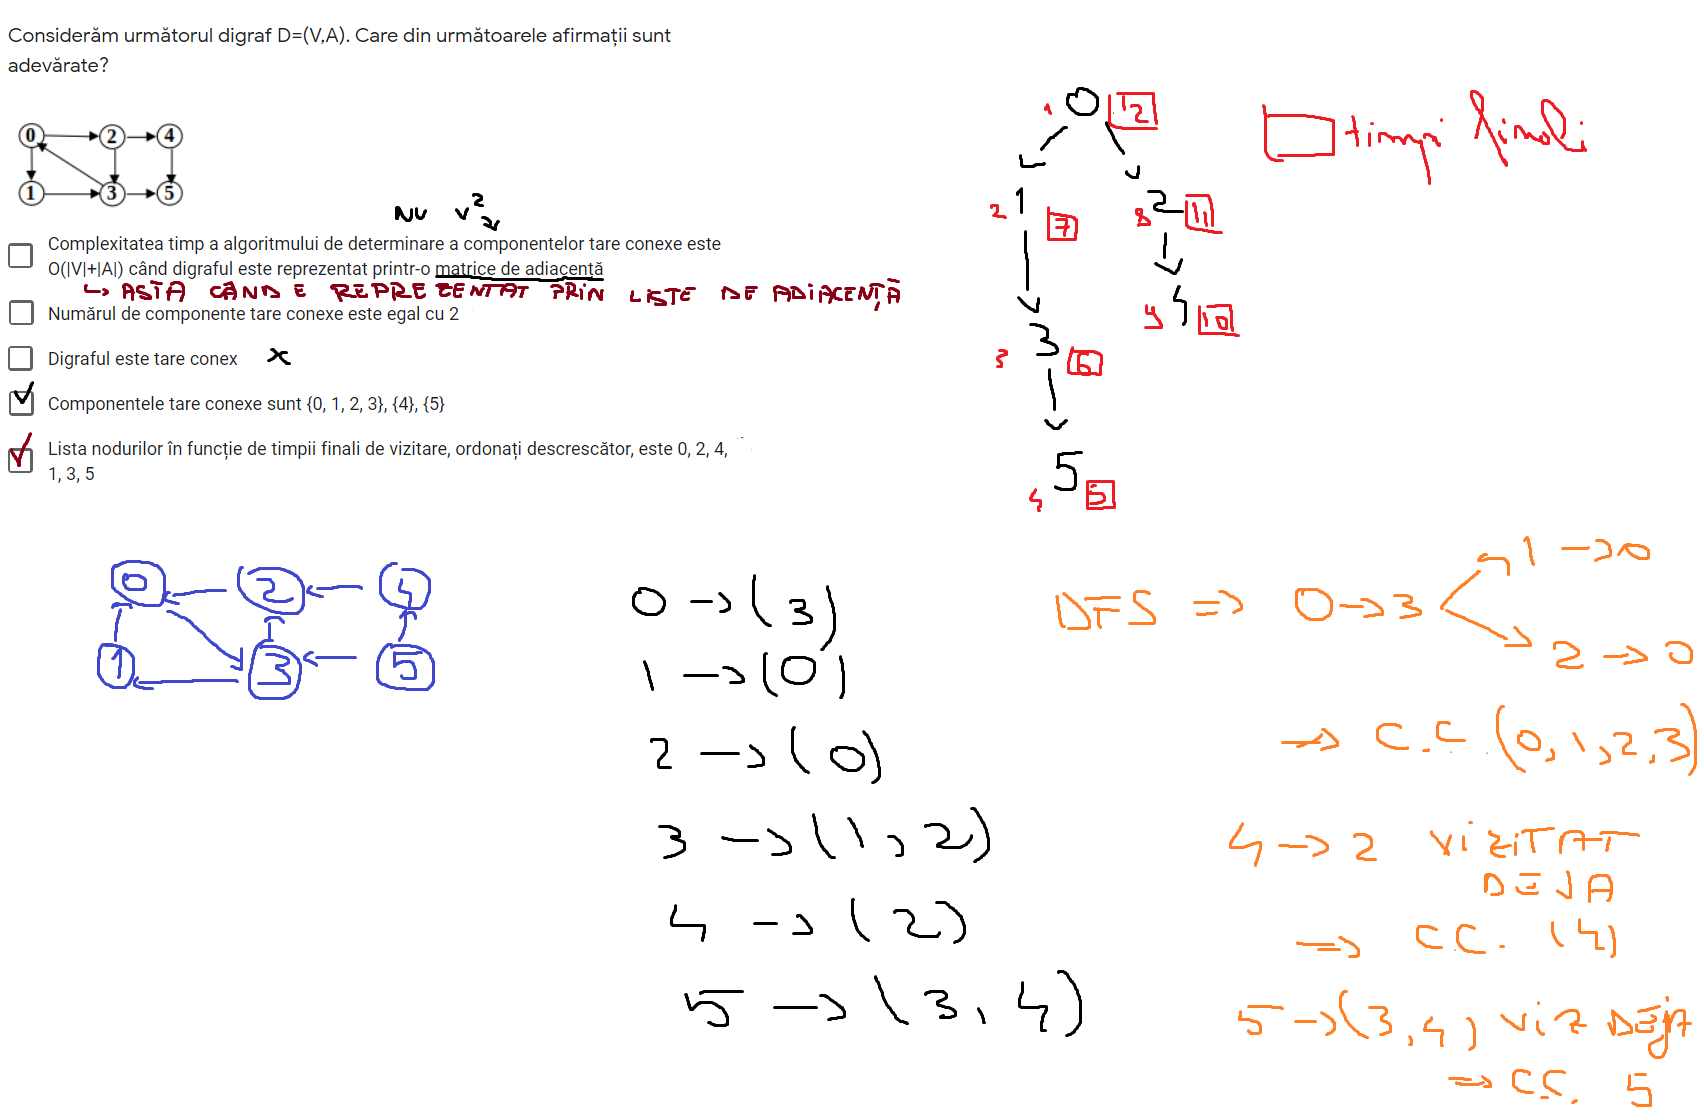 Considerăm următorul digraf D=(V,A). Care din următoarele afirmații sunt
adevărate?
0 2 4
1 3 5
NU V²
Complexitatea timp a algoritmului de determinare a componentelor tare conexe este
O(|V|+|A|) când digraful este reprezentat printr-o matrice de adiacență
↳ ASTA CÂND E REPREZENTAT PRIN LISTE DE ADIACENȚĂ
Numărul de componente tare conexe este egal cu 2
Digraful este tare conex x
Componentele tare conexe sunt {0, 1, 2, 3}, {4}, {5}
Lista nodurilor în funcție de timpii finali de vizitare, ordonați descrescător, este 0, 2, 4,
1, 3, 5
1 0 12
timpi finali
2 1 7
8 2 11
3 3 6
9 4 10
4 5 5
0 2 4
1 3 5
0 -> (3)
1 -> (0)
2 -> (0)
3 -> (1, 2)
4 -> (2)
5 -> (3, 4)
DFS => 0 -> 3
1 -> 0
2 -> 0
=> C.C. (0, 1, 2, 3)
4 -> 2 VIZITAT
DEJA
=> C.C. (4)
5 -> (3, 4) VIZ DEJA
=> C.C. 5